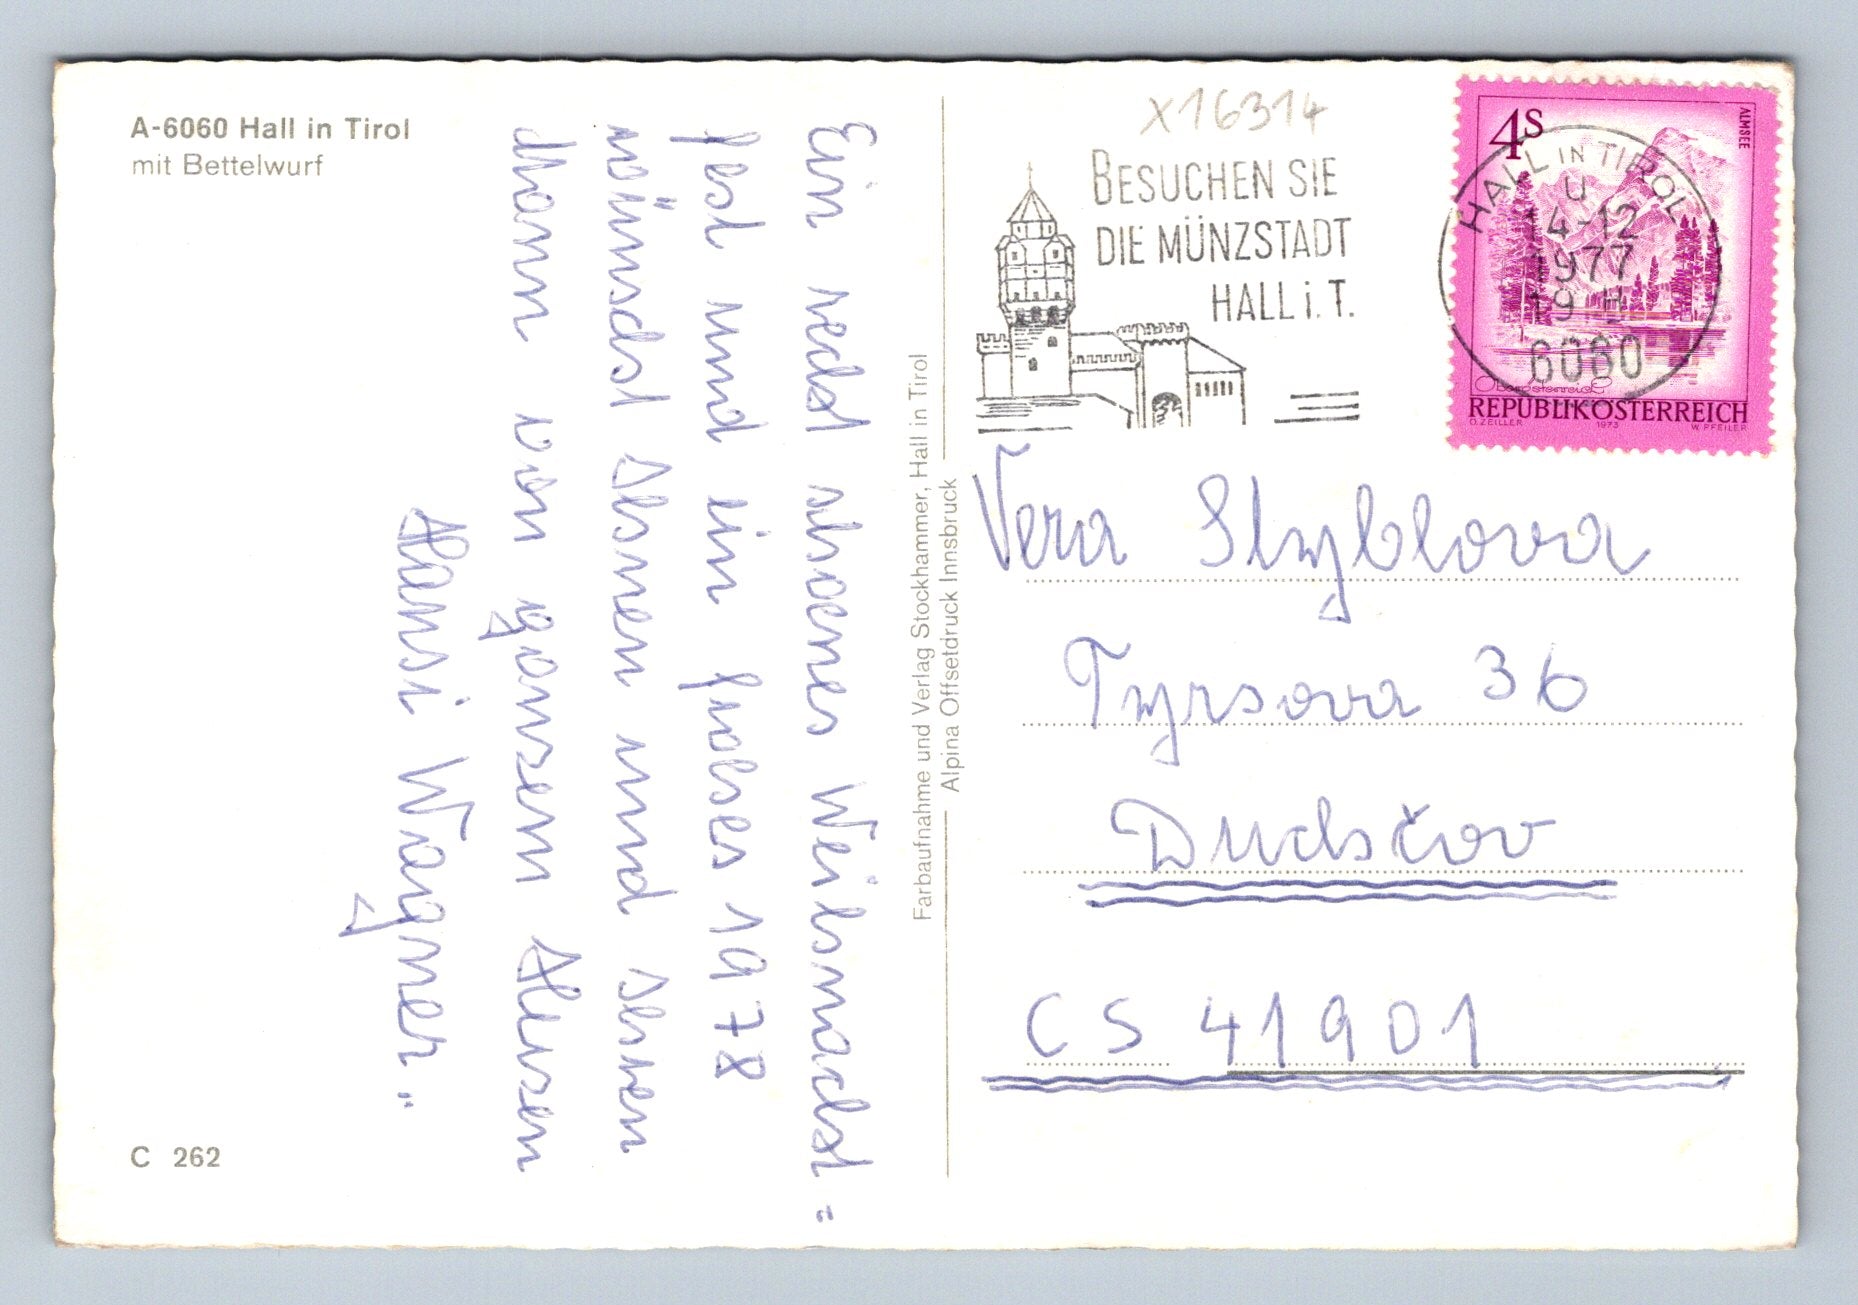 A-6060 Hall in Tirol
mit Bettelwurf
Ein recht schoenes Weihnachts=
fest und ein frohes 1978
wünscht Ihnen und Ihrem
Mann von ganzem Herzen
Hansi Wagner..
C 262
Farbaufnahme und Verlag Stockhammer, Hall in Tirol
Alpina Offsetdruck Innsbruck
X16314
BESUCHEN SIE
DIE MÜNZSTADT
HALL i. T.
4S
ALMSEE
HALL IN TIROL
U
14-12
1977
19
6060
Oberösterreich
REPUBLIK ÖSTERREICH
O. ZEILLER 1973 W. PFEILER
Vera Styblova
Tyrsova 36
Duchčov
CS 41901